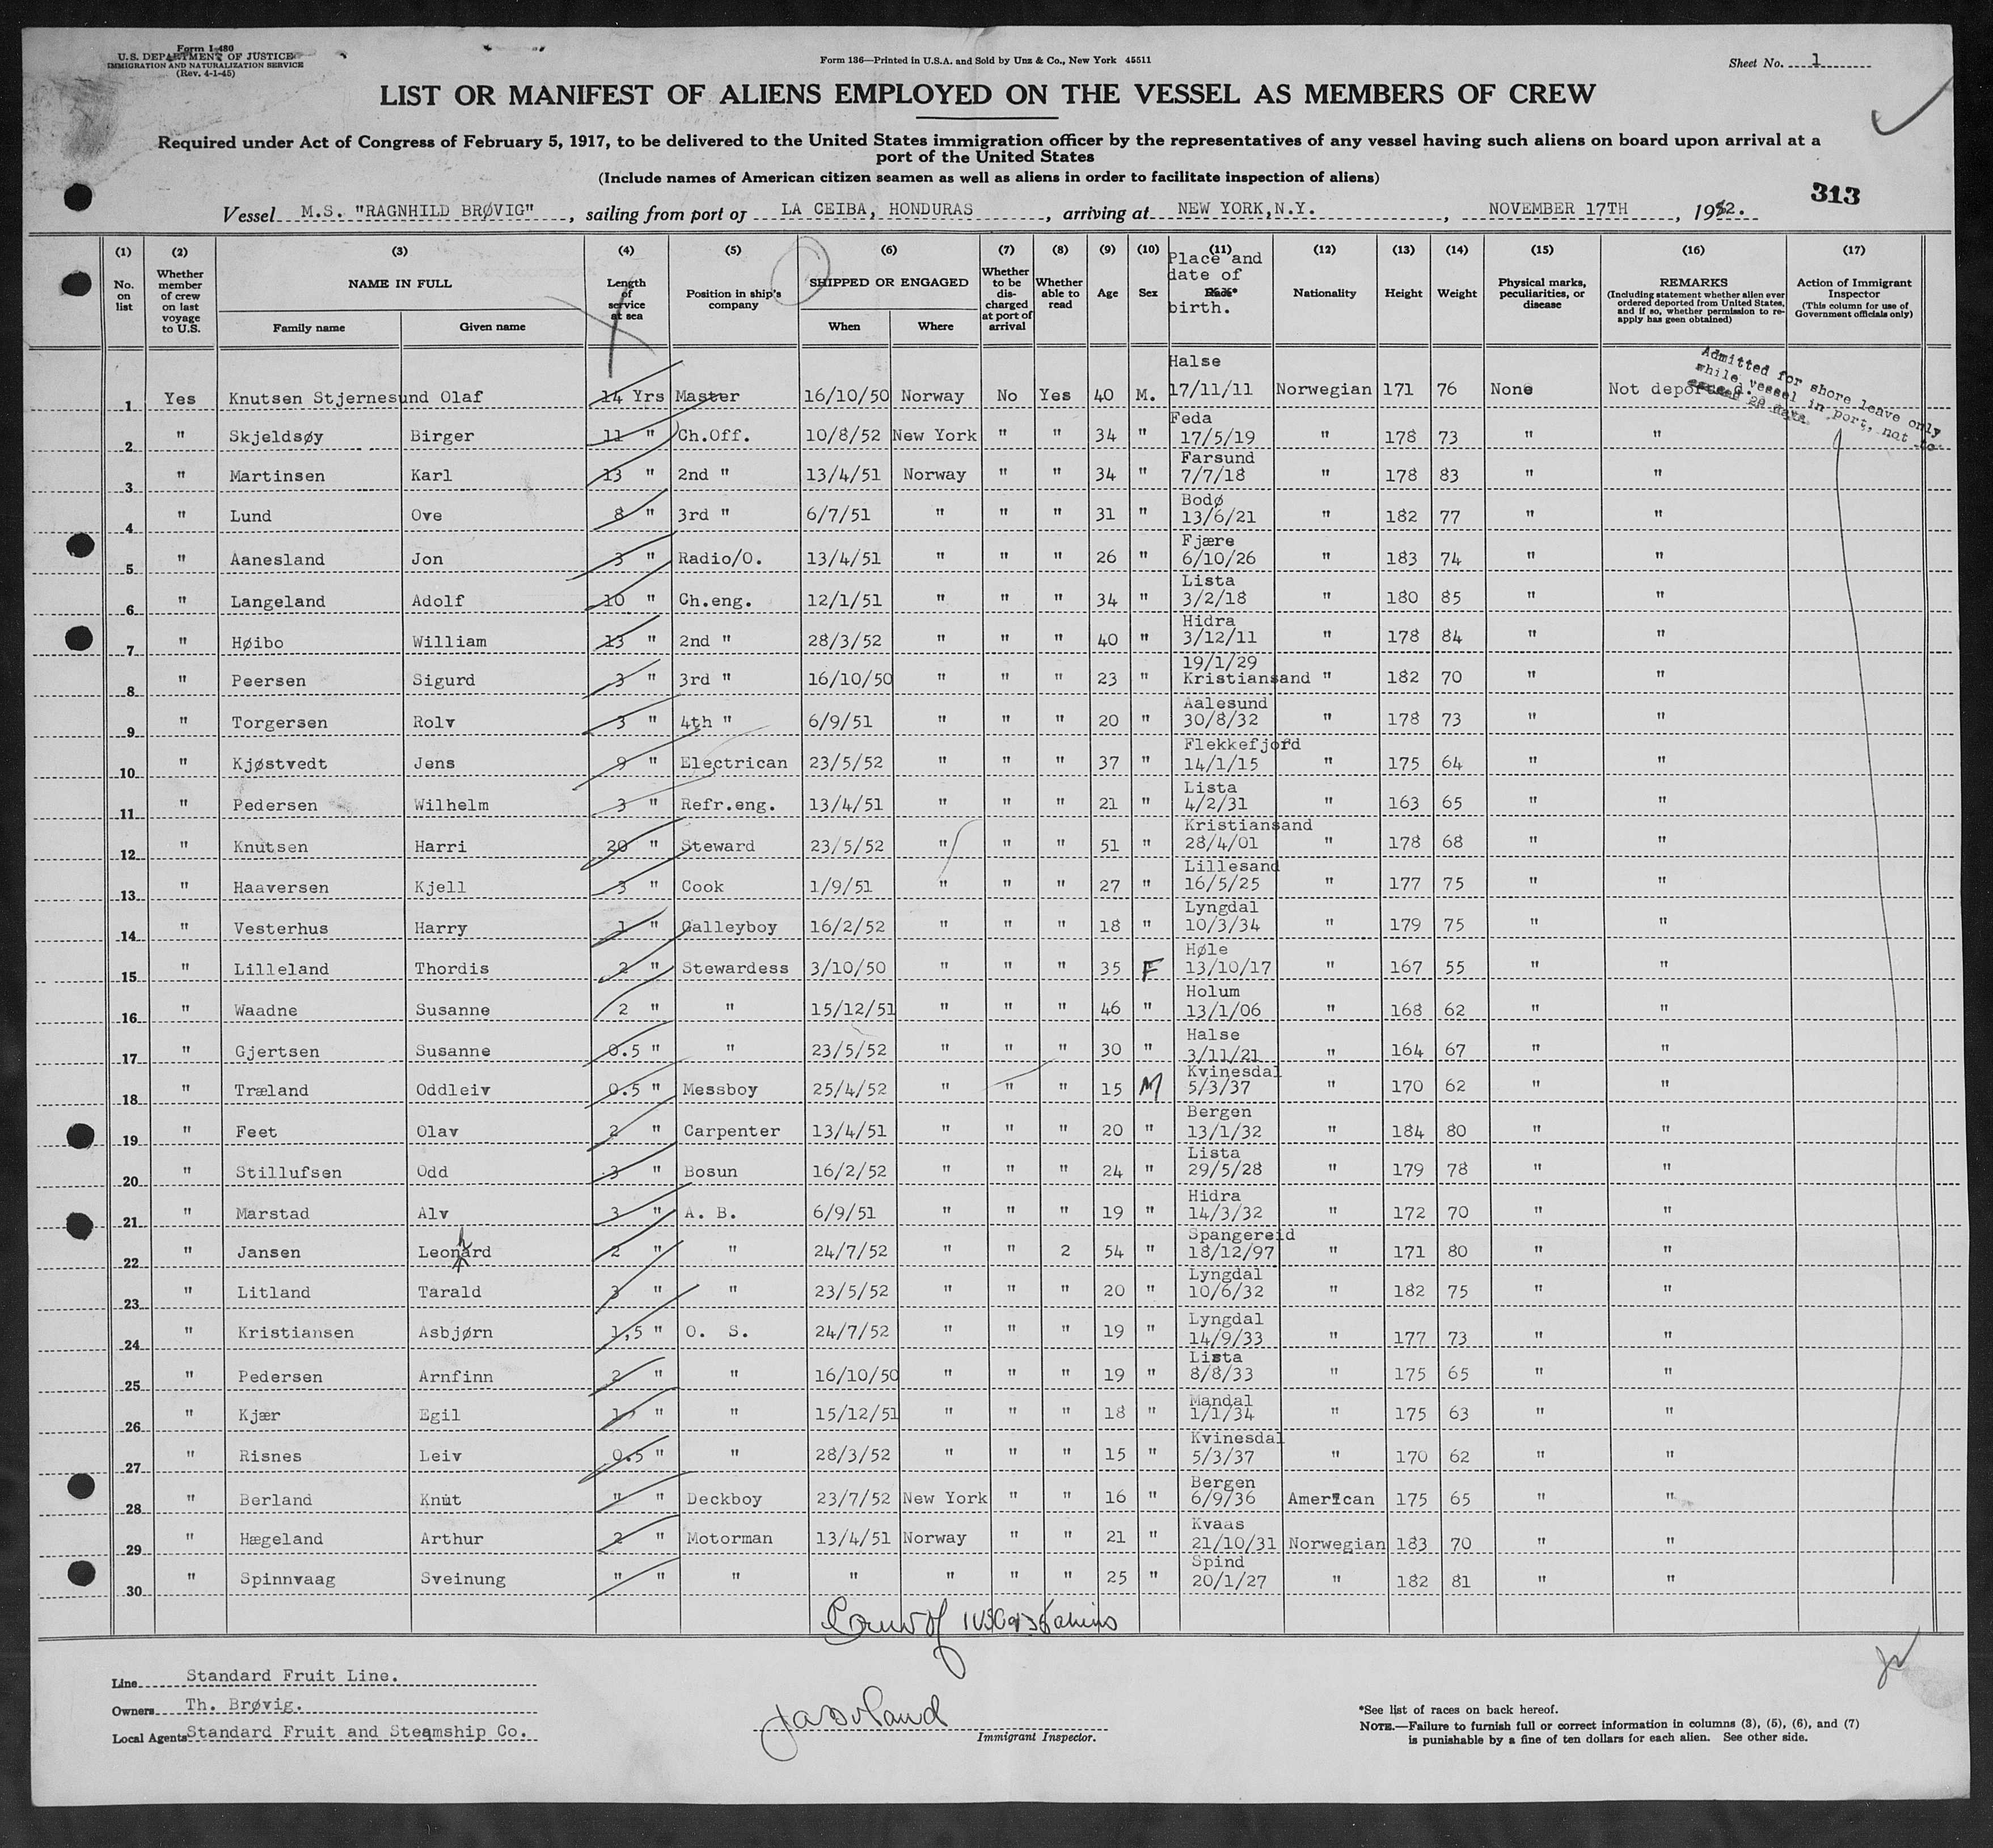 Form I-480
U.S. DEPARTMENT OF JUSTICE
IMMIGRATION AND NATURALIZATION SERVICE
(Rev. 4-1-45)
Form 136—Printed in U.S.A. and Sold by Unz & Co., New York 45511
Sheet No. 1
LIST OR MANIFEST OF ALIENS EMPLOYED ON THE VESSEL AS MEMBERS OF CREW
Required under Act of Congress of February 5, 1917, to be delivered to the United States immigration officer by the representatives of any vessel having such aliens on board upon arrival at a
port of the United States
(Include names of American citizen seamen as well as aliens in order to facilitate inspection of aliens)
313
Vessel M.S. "RAGNHILD BRØVIG", sailing from port of LA CEIBA, HONDURAS, arriving at NEW YORK, N.Y., NOVEMBER 17TH, 1952.
(1) No. on list
(2) Whether member of crew on last voyage to U.S.
(3) NAME IN FULL Family name Given name
(4) Length of service at sea
(5) Position in ship's company
(6) SHIPPED OR ENGAGED When Where
(7) Whether to be discharged at port of arrival
(8) Whether able to read
(9) Age
(10) Sex
(11) Place and date of Race* birth.
(12) Nationality
(13) Height
(14) Weight
(15) Physical marks, peculiarities, or disease
(16) REMARKS (Including statement whether alien ever ordered deported from United States, and if so, whether permission to re-apply has geen obtained)
(17) Action of Immigrant Inspector (This column for use of Government officials only)
Admitted for shore leave only
while vessel in port, not to
1 Yes Knutsen Stjernesund Olaf 14 Yrs Master 16/10/50 Norway No Yes 40 M. Halse 17/11/11 Norwegian 171 76 None Not deported
2 " Skjeldsøy Birger 11 " Ch.Off. 10/8/52 New York " " 34 " Feda 17/5/19 " 178 73 " "
3 " Martinsen Karl 13 " 2nd " 13/4/51 Norway " " 34 " Farsund 7/7/18 " 178 83 " "
4 " Lund Ove 8 " 3rd " 6/7/51 " " " 31 " Bodø 13/6/21 " 182 77 " "
5 " Aanesland Jon 3 " Radio/O. 13/4/51 " " " 26 " Fjære 6/10/26 " 183 74 " "
6 " Langeland Adolf 10 " Ch.eng. 12/1/51 " " " 34 " Lista 3/2/18 " 180 85 " "
7 " Høibo William 13 " 2nd " 28/3/52 " " " 40 " Hidra 3/12/11 " 178 84 " "
8 " Peersen Sigurd 3 " 3rd " 16/10/50 " " " 23 " 19/1/29 Kristiansand " 182 70 " "
9 " Torgersen Rolv 3 " 4th " 6/9/51 " " " 20 " Aalesund 30/8/32 " 178 73 " "
10 " Kjøstvedt Jens 9 " Electrican 23/5/52 " " " 37 " Flekkefjord 14/1/15 " 175 64 " "
11 " Pedersen Wilhelm 3 " Refr.eng. 13/4/51 " " " 21 " Lista 4/2/31 " 163 65 " "
12 " Knutsen Harri 20 " Steward 23/5/52 " " " 51 " Kristiansand 28/4/01 " 178 68 " "
13 " Haaversen Kjell 3 " Cook 1/9/51 " " " 27 " Lillesand 16/5/25 " 177 75 " "
14 " Vesterhus Harry 1 " Galleyboy 16/2/52 " " " 18 " Lyngdal 10/3/34 " 179 75 " "
15 " Lilleland Thordis 2 " Stewardess 3/10/50 " " " 35 F Høle 13/10/17 " 167 55 " "
16 " Waadne Susanne 2 " " 15/12/51 " " " 46 " Holum 13/1/06 " 168 62 " "
17 " Gjertsen Susanne 0.5 " " 23/5/52 " " " 30 " Halse 3/11/21 " 164 67 " "
18 " Træland Oddleiv 0.5 " Messboy 25/4/52 " " " 15 M Kvinesdal 5/3/37 " 170 62 " "
19 " Feet Olav 2 " Carpenter 13/4/51 " " " 20 " Bergen 13/1/32 " 184 80 " "
20 " Stillufsen Odd 3 " Bosun 16/2/52 " " " 24 " Lista 29/5/28 " 179 78 " "
21 " Marstad Alv 3 " A. B. 6/9/51 " " " 19 " Hidra 14/3/32 " 172 70 " "
22 " Jansen Leonhard 2 " " 24/7/52 " " 2 54 " Spangereid 18/12/97 " 171 80 " "
23 " Litland Tarald 3 " " 23/5/52 " " " 20 " Lyngdal 10/6/32 " 182 75 " "
24 " Kristiansen Asbjørn 1,5 " O. S. 24/7/52 " " " 19 " Lyngdal 14/9/33 " 177 73 " "
25 " Pedersen Arnfinn 2 " " 16/10/50 " " " 19 " Lista 8/8/33 " 175 65 " "
26 " Kjær Egil " " 15/12/51 " " " 18 " Mandal 1/1/34 " 175 63 " "
27 " Risnes Leiv 0.5 " " 28/3/52 " " " 15 " Kvinesdal 5/3/37 " 170 62 " "
28 " Berland Knut " " Deckboy 23/7/52 New York " " 16 " Bergen 6/9/36 American 175 65 " "
29 " Hægeland Arthur 2 " Motorman 13/4/51 Norway " " 21 " Kvaas 21/10/31 Norwegian 183 70 " "
30 " Spinnvaag Sveinung " " " " " " " 25 " Spind 20/1/27 " 182 81 " "
Line Standard Fruit Line.
Owners Th. Brøvig.
Local Agents Standard Fruit and Steamship Co.
Immigrant Inspector.
*See list of races on back hereof.
NOTE.—Failure to furnish full or correct information in columns (3), (5), (6), and (7)
is punishable by a fine of ten dollars for each alien. See other side.